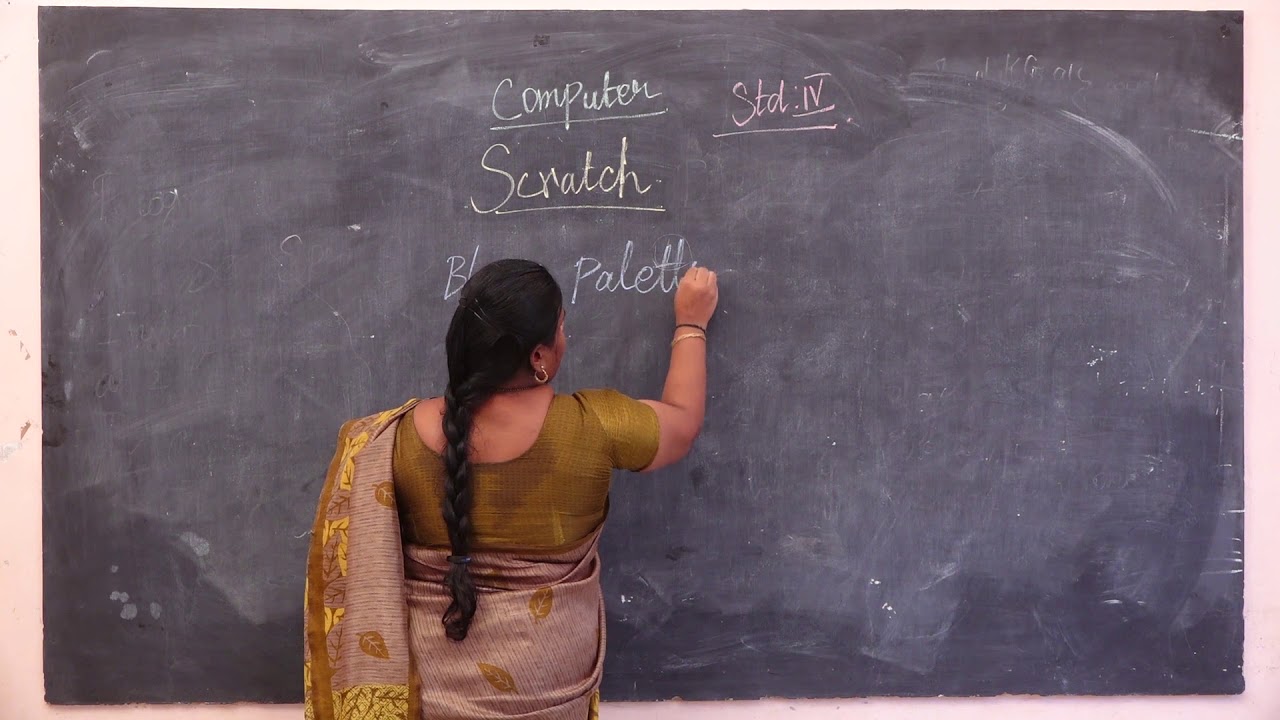 Computer Std: IV.
Scratch
Palette